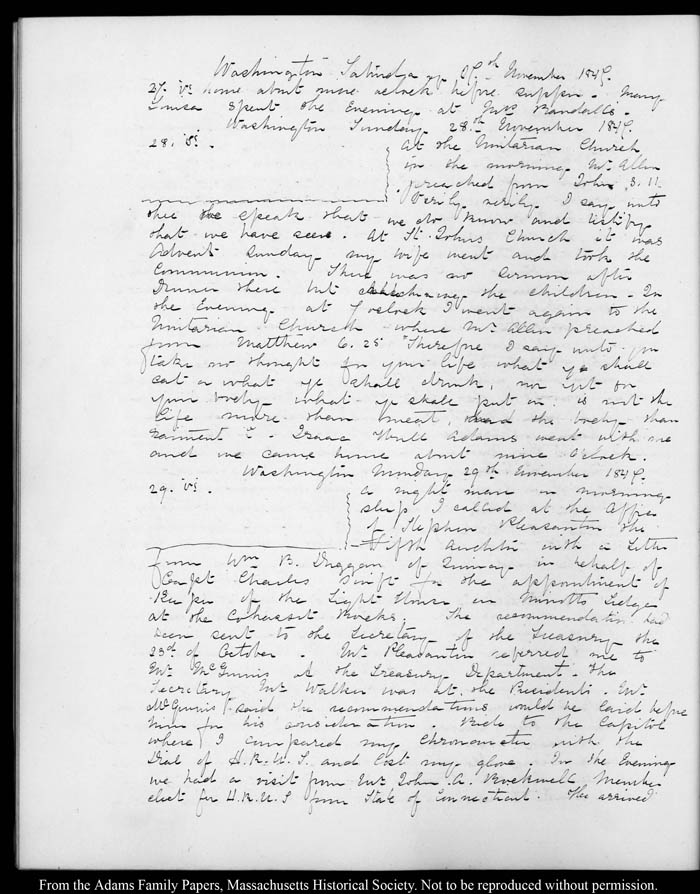 Washington Saturday 27th November 1847.
27. VI. home about nine o'clock before supper. Mary
Louisa spent the Evening at Mrs Randall's.
Washington Sunday 28th November 1847.
28. 
At the Unitarian Church
in the morning Mr Allen
preached from John 3. 11
Verily verily I say unto
thee we speak that we do know and testify
that we have seen. At St. Johns Church it was
Advent Sunday my wife went and took the
Communion. There was no Sermon after
Dinner there but the children. In
the Evening at 7 o'clock I went again to the
Unitarian Church where Mr Allen preached
from Matthew 6. 25 "Therefore I say unto you
take no thought for your life what ye shall
eat or what ye shall drink, nor yet for
your body what ye shall put on: is not the
life more than meat, and the body than
raiment &. Isaac Hull Adams went with me
and we came home about nine o'clock.
Washington Monday 29th November 1847.
29. 
a night man or morning
sleep I called at the Office
of Stephen Pleasanton the
Fifth Auditor with a Letter
from Wm B. Duggan of Quincy in behalf of
Capt Charles Swift for the appointment of
Keeper of the Light House on Minotts Ledge
at the Cohasset Rocks. The recommendation had
been sent to the Secretary of the Treasury the
23d of October. Mr Pleasanton referred me to
Mr McGinnis at the Treasury Department. The
Secretary Mr Walker was at the Presidents. Mr
McGinnis said the recommendations would be laid before
him for his consideration. Ride to the Capitol
where I compared my Chronometer with the
Dial of H.R.U.S. and lost my glove. In the Evening
we had a visit from Mr John A. Rockwell, Member
elect for H.R.U.S from State of Connecticut. He arrived
From the Adams Family Papers, Massachusetts Historical Society. Not to be reproduced without permission.